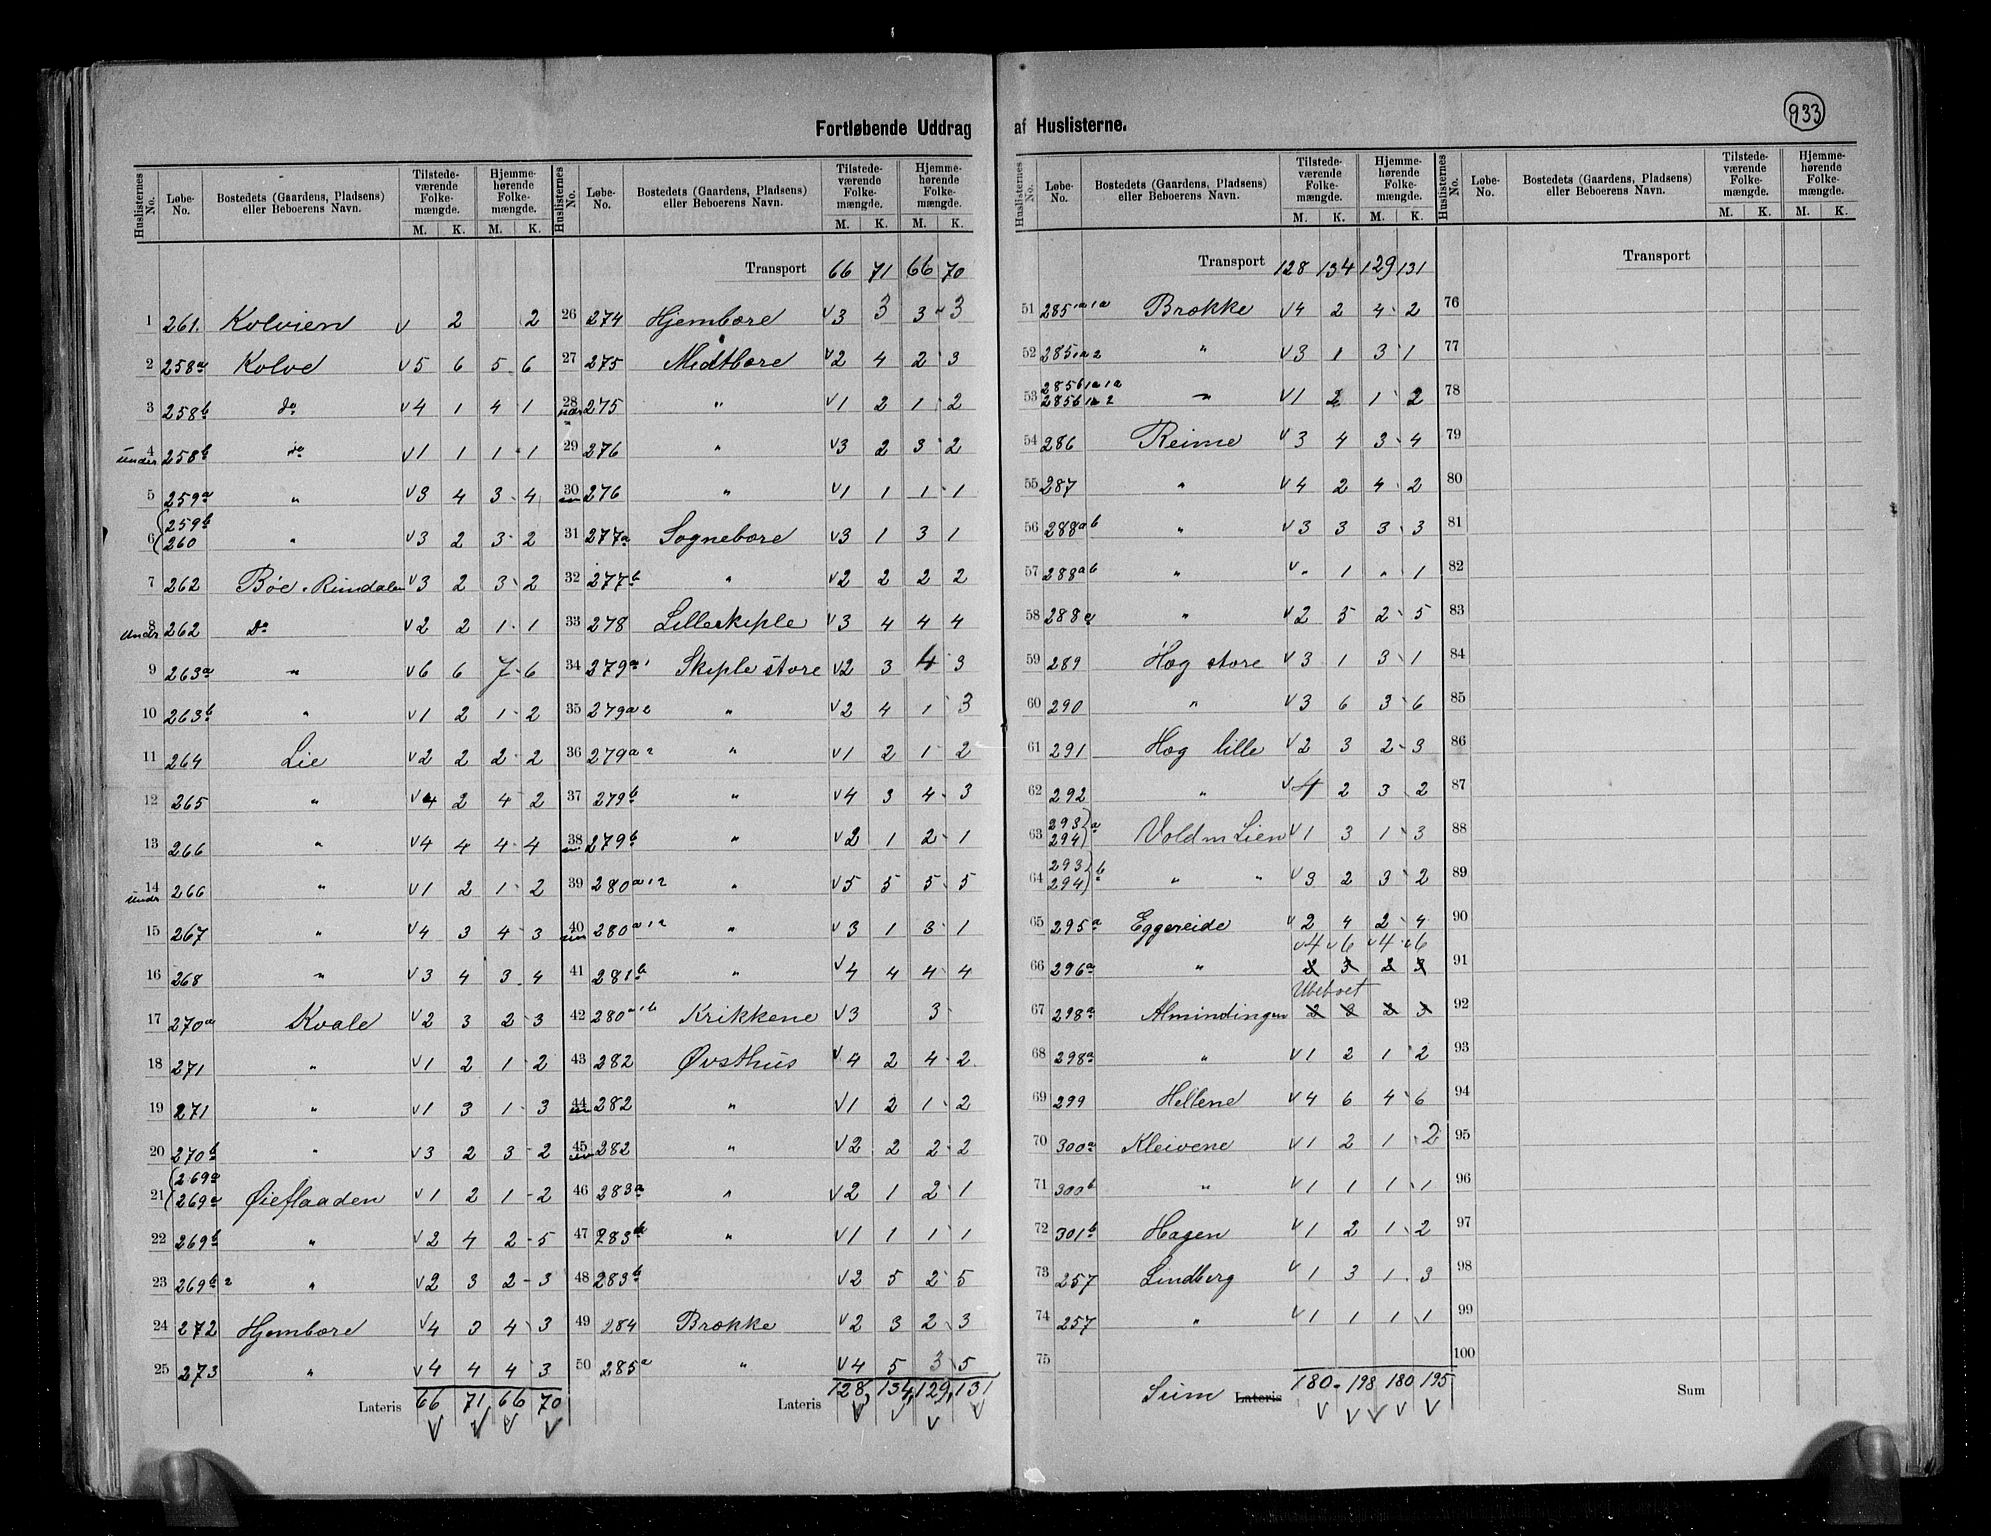 933
Fortløbende Uddrag af Huslisterne.
Huslisternes No. Løbe-No. Bostedets (Gaardens, Pladsens) eller Beboerens Navn. Tilstedeværende Folkemængde. M. K. Hjemmehørende Folkemængde. M. K.
1 261. Kolvien v 2 2
2 258a Kolve v5 6 5 6
3 258b do v4 1 4 1
4 under 258b do v1 1 1 1
5 259a " v3 4 3 4
6 (259b 260 " v3 2 3 2
7 262 Böe. Rundalen v3 2 3 2
8 under 262 Do v2 2 1 1
9 263a " v6 6 7 6
10 263b " v1 2 1 2
11 264 Lie v2 2 2 2
12 265 " v4 2 4 2
13 266 " v4 4 4 4
14 under 266 " v1 2 1 2
15 267 " v4 3 4 3
16 268 " v3 4 3 4
17 270a Kvale v2 3 2 3
18 271 " v1 2 1 2
19 271 " v1 3 1 3
20 270b " v3 2 3 2
21 (269a 269a Øieflaaden v1 2 1 2
22 269b " v2 4 2 5
23 269b2 " v2 3 2 3
24 272 Hjembøre v4 3 4 3
25 273 " v4 4 4 3
Lateris 66 71 66 70
Huslisternes No. Løbe-No. Bostedets (Gaardens, Pladsens) eller Beboerens Navn. Tilstedeværende Folkemængde. M. K. Hjemmehørende Folkemængde. M. K.
Transport 66 71 66 70
26 274 Hjembøre v3 3 3 3
27 275 Midtbøre v2 4 2 3
28 275 " v1 2 1 2
29 276 " v3 2 3 2
30 276 " v1 1 1 1
31 277a Sognebøre v3 1 3 1
32 277b " v2 2 2 2
33 278 Lilleskiple v3 4 4 4
34 279a1 Skiple store v2 3 4 3
35 279a2 " v2 4 1 3
36 279a2 " v1 2 1 2
37 279b " v4 3 4 3
38 279b " v2 1 2 1
39 280a12 " v5 5 5 5
40 280a12 " v3 1 3 1
41 281b " v4 4 4 4
42 280a1b Krikkene v3 3
43 282 Øvsthus v4 2 4 2
44 282 " v1 2 1 2
45 282 " v2 2 2 2
46 283a " v2 1 2 1
47 283a " v1 1 1 1
48 283b v2 5 2 5
49 284 Brøkke v2 3 2 3
50 285a " v4 5 3 5
Lateris 128 134 129 131
Huslisternes No. Løbe-No. Bostedets (Gaardens, Pladsens) eller Beboerens Navn. Tilstedeværende Folkemængde. M. K. Hjemmehørende Folkemængde. M. K.
Transport 128 134 129 131
51 285 1a1a Brøkke v4 2 4 2
52 285 1a2 " v3 1 3 1
53 285b1a1a 285b1a2 " v1 2 1 2
54 286 Reime v3 4 3 4
55 287 " v4 2 4 2
56 288ab " v3 3 3 3
57 288ab " v" 1 " 1
58 288a " v2 5 2 5
59 289 Høg store v3 1 3 1
60 290 " v3 6 3 6
61 291 Høg lille v2 3 2 3
62 292 " v4 2 3 2
63 293 294)a Vold m Lien v1 3 1 3
64 293 294)b " " v3 2 3 2
65 295a Eggereide v2 4 2 4
v4 v6 v4 v6
66 296a " 2 3 2 3
Ubeboet
67 298a Almindingen 2 3 2 3
68 298a " v1 2 1 2
69 299 Hellene v4 6 4 6
70 300a Kleivene v1 2 1 2
71 300b " v1 1 1 1
72 301b Hagen v1 2 1 2
73 257 Lindberg v1 3 1 3
74 257 " v1 1 1 1
75
Sum Lateris 180 198 180 195
Huslisternes No. Løbe-No. Bostedets (Gaardens, Pladsens) eller Beboerens Navn. Tilstedeværende Folkemængde. M. K. Hjemmehørende Folkemængde. M. K.
Transport
76
77
78
79
80
81
82
83
84
85
86
87
88
89
90
91
92
93
94
95
96
97
98
99
100
Sum